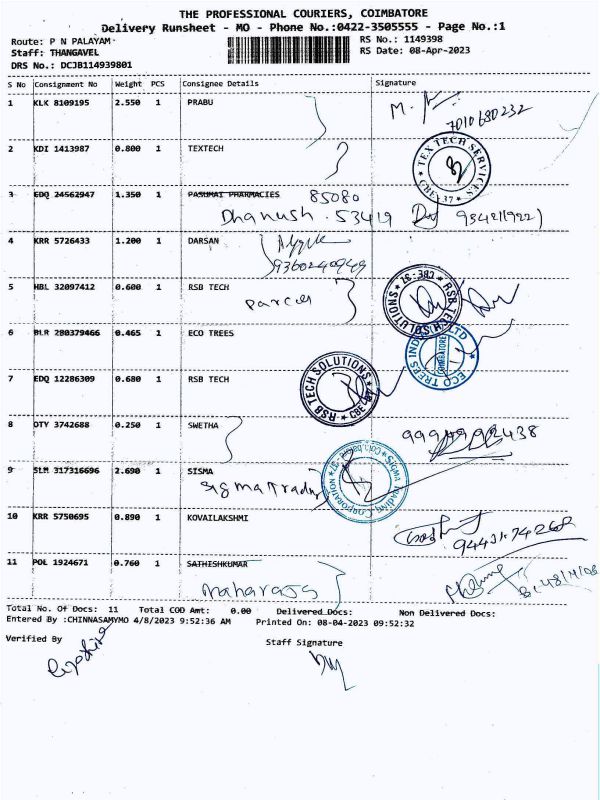 THE PROFESSIONAL COURIERS, COIMBATORE
Delivery Runsheet - MO - Phone No.:0422-3505555 - Page No.:1
Route: P N PALAYAM
RS No.: 1149398
Staff: THANGAVEL
RS Date: 08-Apr-2023
DRS No.: DCJB114939801
S No Consignment No Weight PCS Consignee Details Signature
1 KLK 8109195 2.550 1 PRABU
M.
7010680232
2 KDI 1413987 0.800 1 TEXTECH
TEX TECH SERVICES
3 EDQ 24562947 1.350 1 PASUMAI PHARMACIES 85080
Dhanush . 53419
4 KRR 5726433 1.200 1 DARSAN
9360240949
5 HBL 32097412 0.600 1 RSB TECH
Parcel
RSB TECH SOLUTIONS CBE-37
6 BLR 280379466 0.465 1 ECO TREES
ECO TREES COIMBATORE
7 EDQ 12286309 0.680 1 RSB TECH
RSB TECH SOLUTIONS
8 DTY 3742688 0.250 1 SWETHA
9 SLM 317316696 2.690 1 SISMA
Sigma Trading
SIGMA TRADING CORPORATION
10 KRR 5750695 0.890 1 KOVAILAKSHMI
11 POL 1924671 0.760 1 SATHISHKUMAR
Total No. Of Docs: 11 Total COD Amt: 0.00 Delivered Docs: Non Delivered Docs:
Entered By :CHINNASAMYMO 4/8/2023 9:52:36 AM Printed On: 08-04-2023 09:52:32
Verified By
Staff Signature